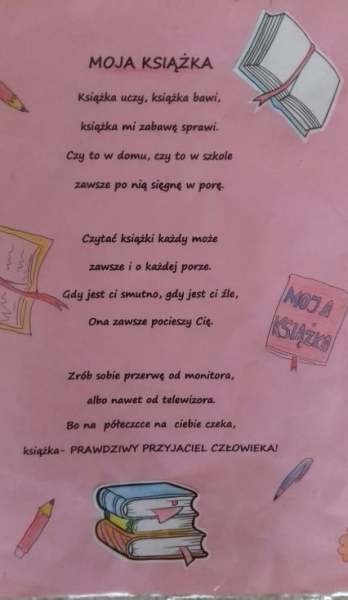 MOJA KSIĄŻKA
Książka uczy, książka bawi,
książka mi zabawę sprawi.
Czy to w domu, czy to w szkole
zawsze po nią sięgnę w porę.
Czytać książki każdy może
zawsze i o każdej porze.
Gdy jest ci smutno, gdy jest ci źle,
Ona zawsze pocieszy Cię.
MOJA
KSIĄŻKA
Zrób sobie przerwę od monitora,
albo nawet od telewizora.
Bo na półeczcce na ciebie czeka,
książka- PRAWDZIWY PRZYJACIEL CZŁOWIEKA!